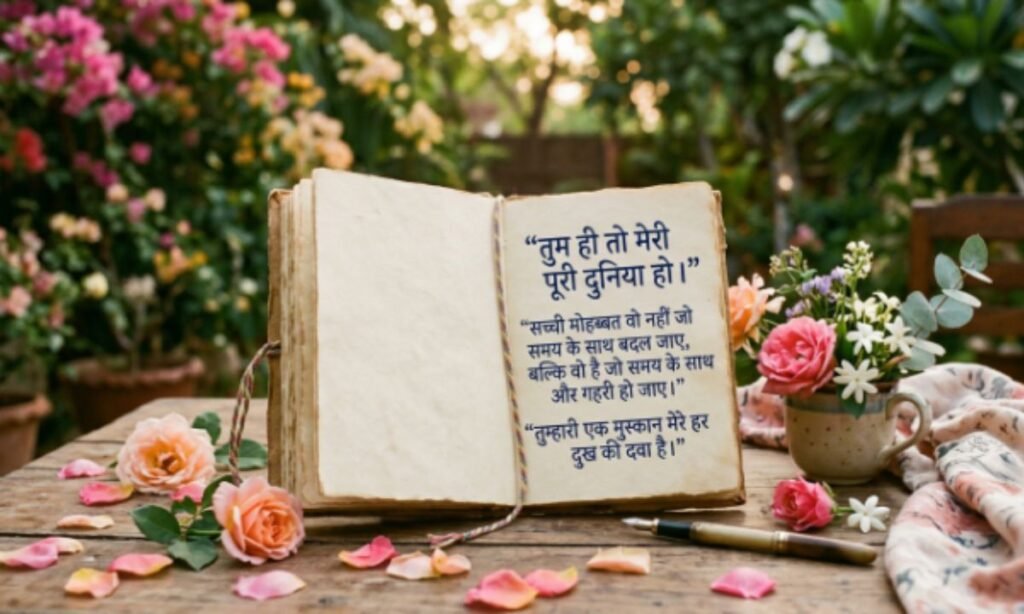 “तुम ही तो मेरी
पूरी दुनिया हो।”
“सच्ची मोहब्बत वो नहीं जो
समय के साथ बदल जाए,
बल्कि वो है जो समय के साथ
और गहरी हो जाए।”
“तुम्हारी एक मुस्कान मेरे हर
दुख की दवा है।”